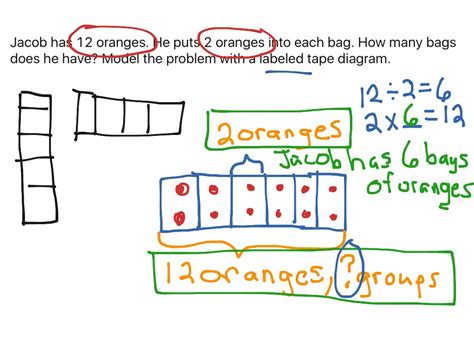 Jacob has 12 oranges. He puts 2 oranges into each bag. How many bags
does he have? Model the problem with a labeled tape diagram.
12 ÷ 2 = 6
2 x 6 = 12
2 oranges
Jacob has 6 bags
of oranges
12 oranges, ? groups